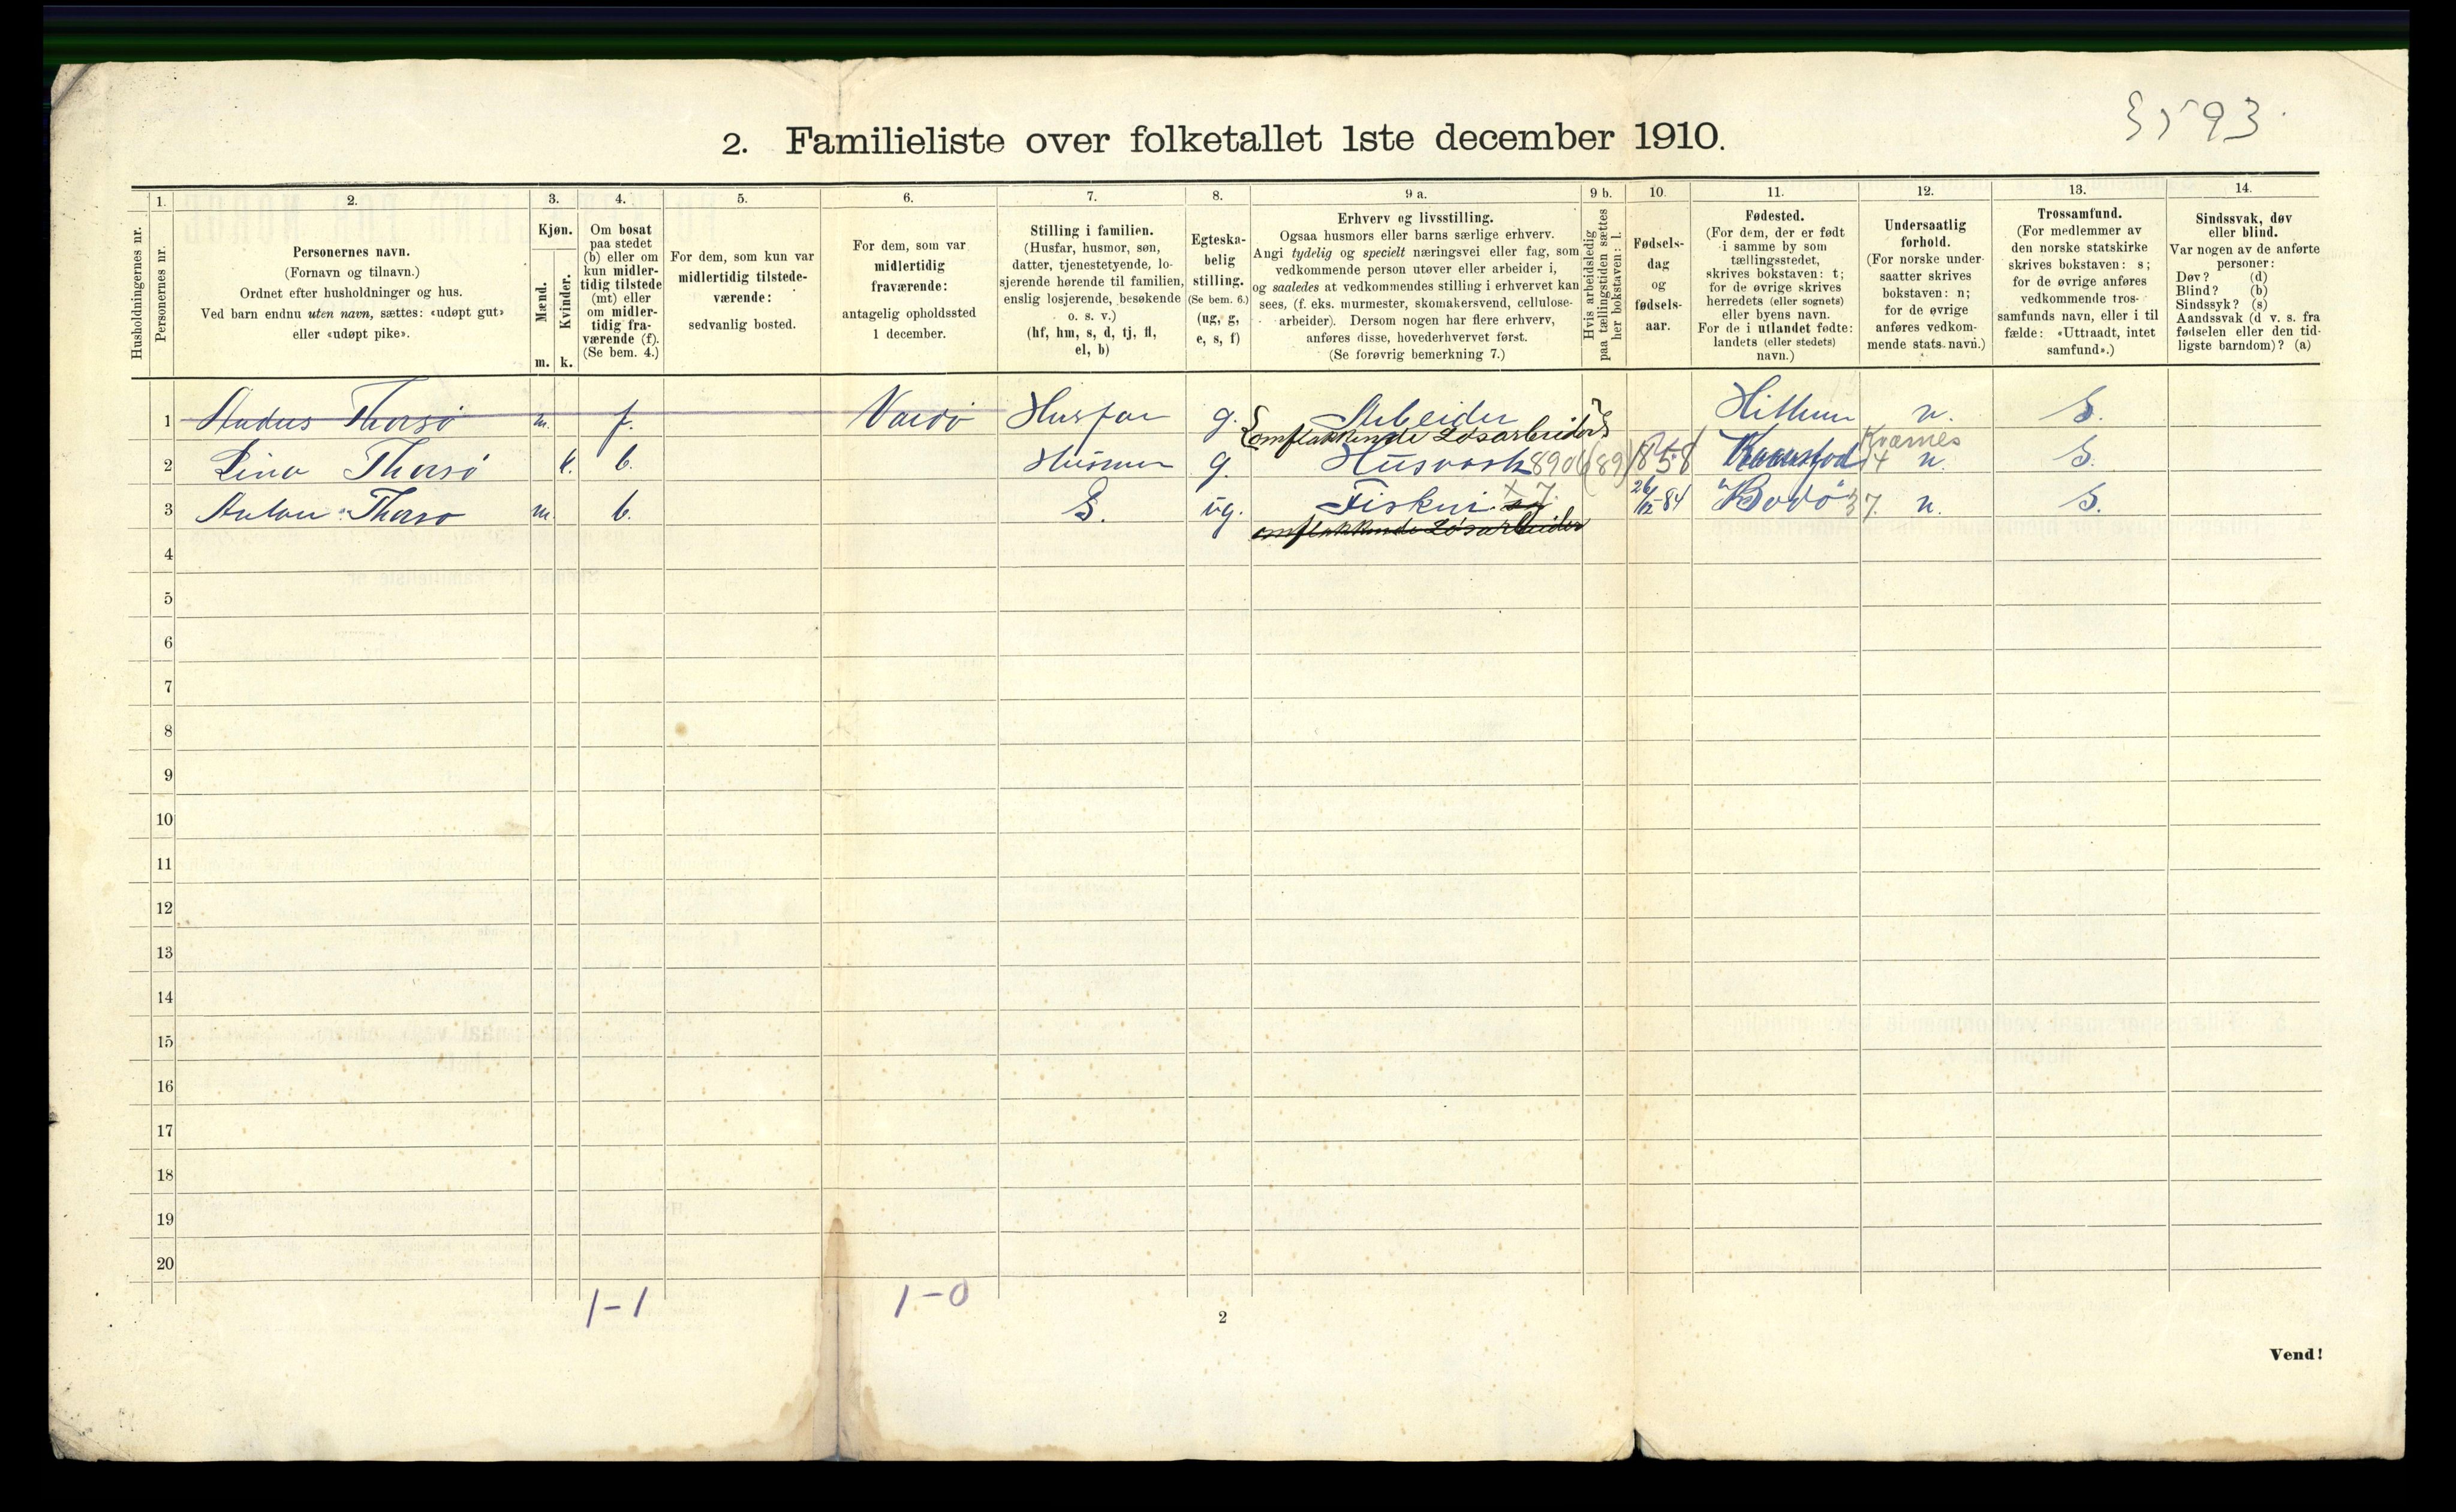 3593.
2. Familieliste over folketallet 1ste december 1910.
Husholdningernes nr.
1.
Personernes nr.
2.
Personernes navn.
(Fornavn og tilnavn.)
Ordnet efter husholdninger og hus.
Ved barn endnu uten navn, sættes: «udøpt gut»
eller «udøpt pike».
3.
Kjøn.
Mænd.
Kvinder.
m. k.
4.
Om bosat
paa stedet
(b) eller om
kun midler-
tidig tilstede
(mt) eller
om midler-
tidig fra-
værende (f).
(Se bem. 4.)
5.
For dem, som kun var
midlertidig tilstede-
værende:
sedvanlig bosted.
6.
For dem, som var
midlertidig
fraværende:
antagelig opholdssted
1 december.
7.
Stilling i familien.
(Husfar, husmor, søn,
datter, tjenestetyende, lo-
sjerende hørende til familien,
enslig losjerende, besøkende
o. s. v.)
(hf, hm, s, d, tj, fl,
el, b)
8.
Egteska-
belig
stilling.
(Se bem. 6.)
(ug, g,
e, s, f)
9 a.
Erhverv og livsstilling.
Ogsaa husmors eller barns særlige erhverv.
Angi tydelig og specielt næringsvei eller fag, som
vedkommende person utøver eller arbeider i,
og saaledes at vedkommendes stilling i erhvervet kan
sees, (f. eks. murmester, skomakersvend, cellulose-
arbeider). Dersom nogen har flere erhverv,
anføres disse, hovederhvervet først.
(Se forøvrig bemerkning 7.)
9 b.
Hvis arbeidsledig
paa tællingstiden sættes
her bokstaven: l.
10.
Fødsels-
dag
og
fødsels-
aar.
11.
Fødested.
(For dem, der er født
i samme by som
tællingsstedet,
skrives bokstaven: t;
for de øvrige skrives
herredets (eller sognets)
eller byens navn.
For de i utlandet fødte:
landets (eller stedets)
navn.)
12.
Undersaatlig
forhold.
(For norske under-
saatter skrives
bokstaven: n;
for de øvrige
anføres vedkom-
mende stats navn.)
13.
Trossamfund.
(For medlemmer av
den norske statskirke
skrives bokstaven: s;
for de øvrige anføres
vedkommende tros-
samfunds navn, eller i til-
fælde: «Uttraadt, intet
samfund».)
14.
Sindssvak, døv
eller blind.
Var nogen av de anførte
personer:
Døv? (d)
Blind? (b)
Sindssyk? (s)
Aandssvak (d v. s. fra
fødselen eller den tid-
ligste barndom)? (a)
1 Thorsö m. f. Vardö Husfar g. Arbeider n. S.
omflakkende Løsarbeider
Kværnes
2 Lina Thorsö k. b. Husmor g. Husvask 890 (89) 1858 14 n. S.
3 Anton Thorsö m. b. S. ug. Fisker x 7. 26/12-84 "Bodö" 37. n. S.
omflakkende Løsarbeider
4
5
6
7
8
9
10
11
12
13
14
15
16
17
18
19
20
1-1 1-0
2
Vend!